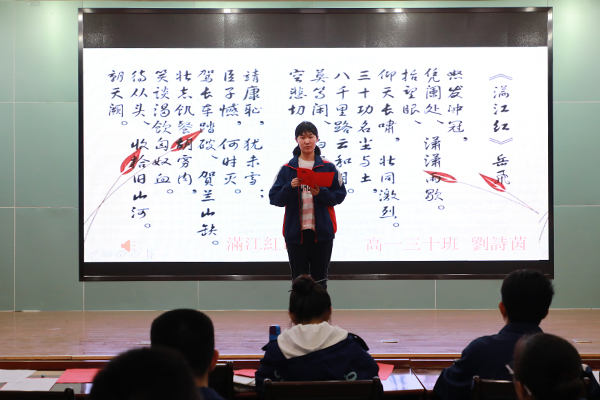 《满江红》岳飞
怒发冲冠,
凭阑处、潇潇雨歇。
抬望眼
仰天长啸,壮怀激烈。
三十功名尘与土
八千里路云和月
莫等闲、白
空悲切
靖康耻,犹未雪;
臣子憾,何时灭
驾长车踏破、贺兰山缺。
壮志饥餐胡虏肉,
笑谈渴饮匈奴血。
待从头、收拾旧山河。
朝天阙。
滿江紅 高一三十班 劉詩茵